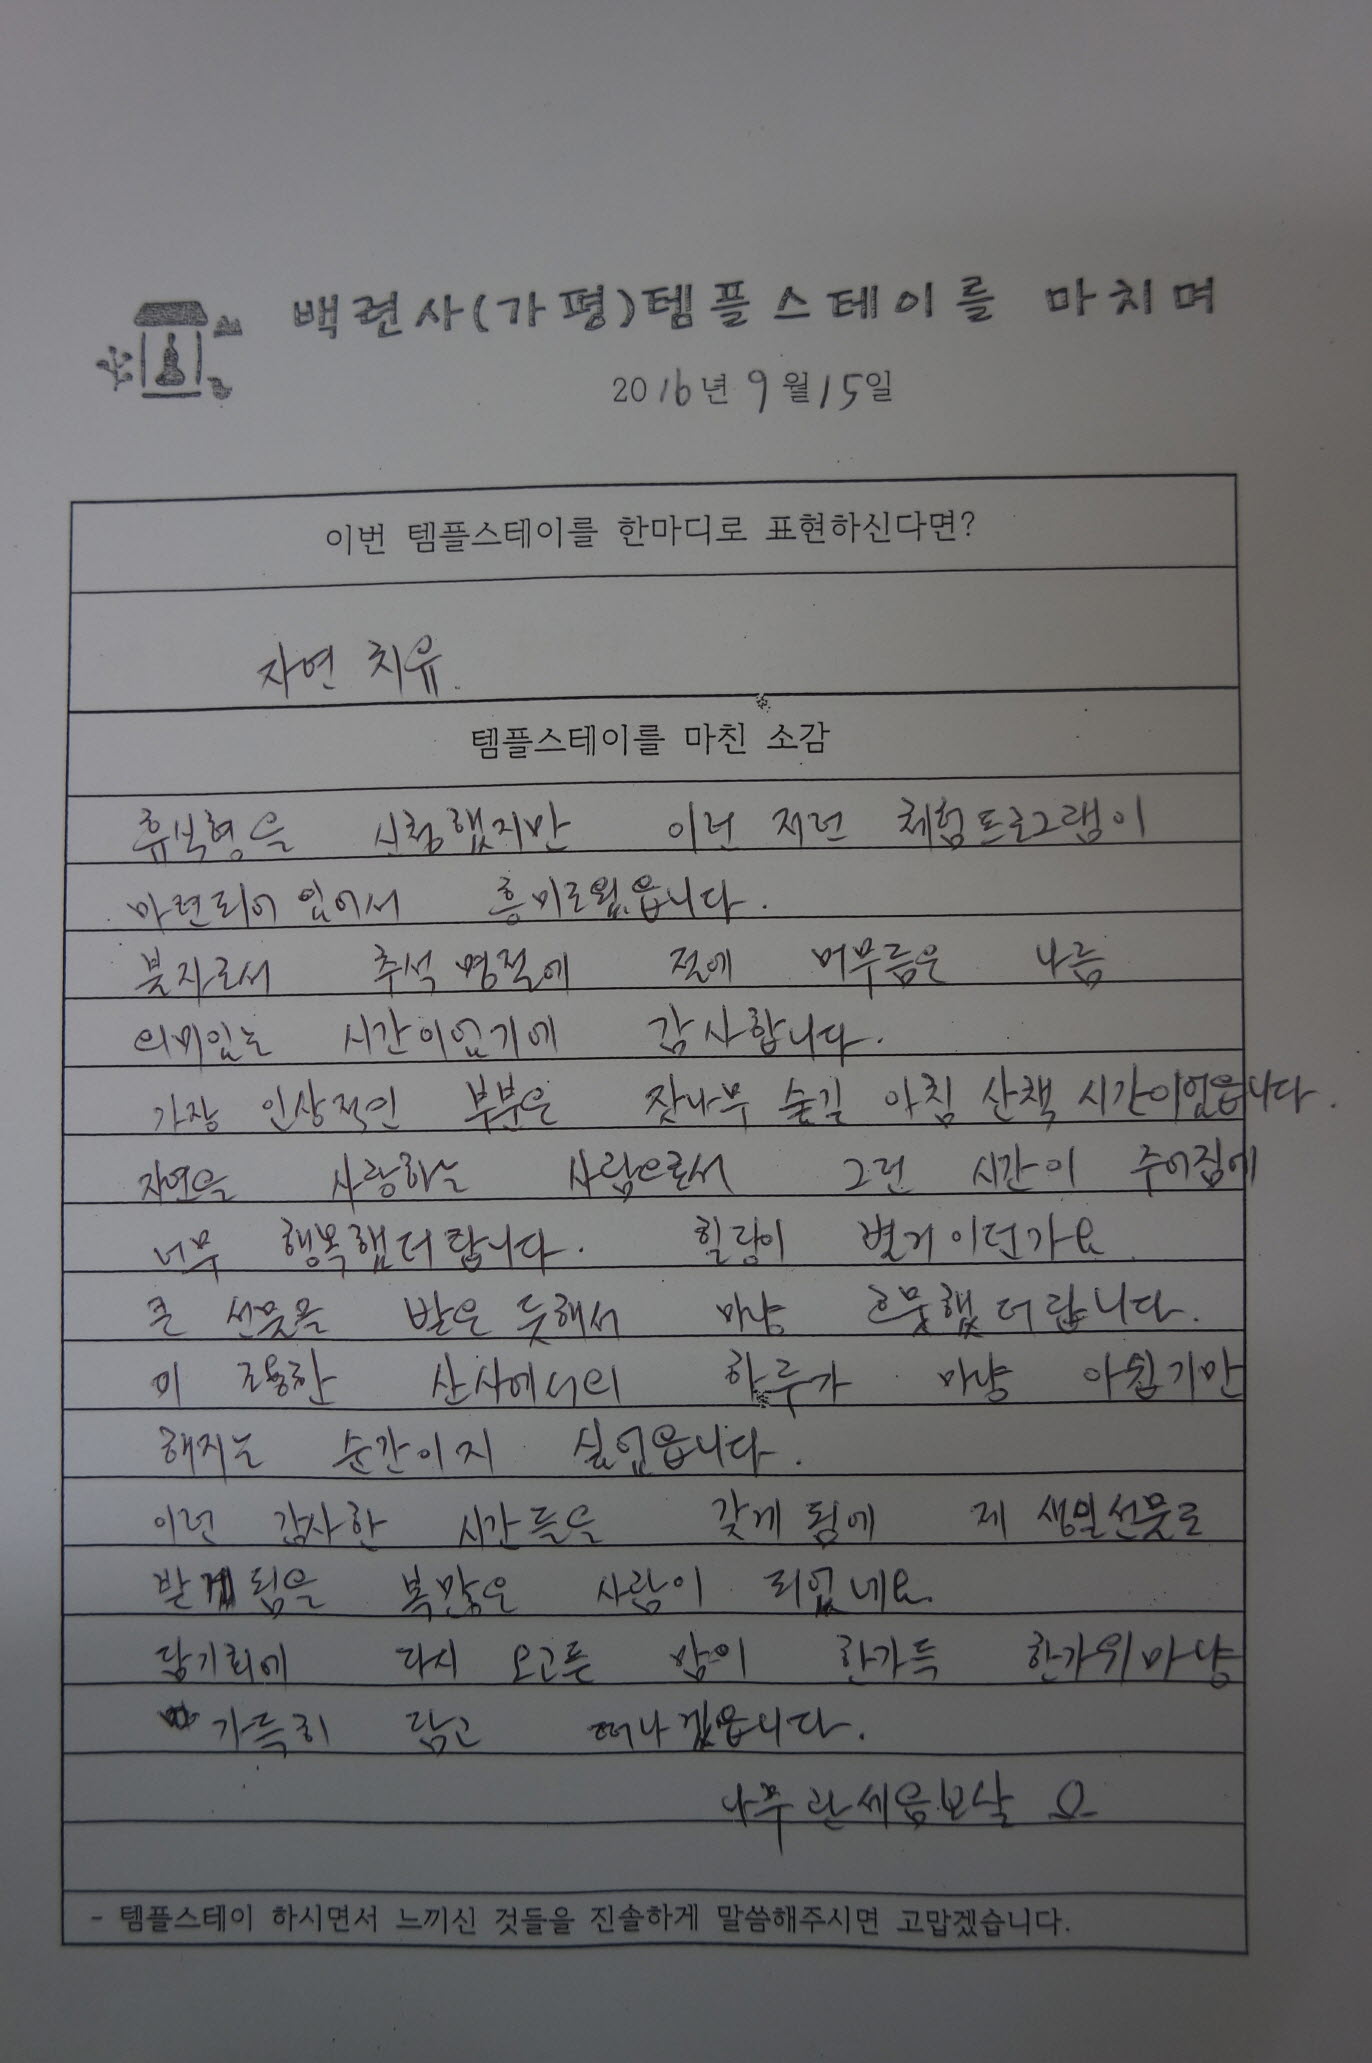 백련사(가평)템플스테이를 마치며
2016년 9월 15일
이번 템플스테이를 한마디로 표현하신다면?
자연 치유.
템플스테이를 마친 소감
휴식형을 신청했지만 이런 저런 체험프로그램이
마련되어 있어서 흥미로웠읍니다.
불자로서 추석 명절에 절에 머무름은 나름
의미있는 시간이었기에 감사합니다.
가장 인상적인 부분은 잣나무 숲길 아침 산책 시간이었읍니다.
자연을 사랑하는 사람으로서 그런 시간이 주어짐에
너무 행복했더랍니다. 힐링이 별거이던가요
큰 선물을 받은 듯해서 마냥 흐뭇했더랍니다.
이 조용한 산사에서의 하루가 마냥 아쉽기만
해지는 순간이지 싶었읍니다.
이런 감사한 시간들을 갖게 됨에 제 생일선물로
받게 됨을 복많은 사람이 되었네요.
담기회에 다시 오고픈 맘이 한가득 한가위마냥
가득히 담고 떠나겠읍니다.
나무관세음보살
- 템플스테이 하시면서 느끼신 것들을 진솔하게 말씀해주시면 고맙겠습니다.